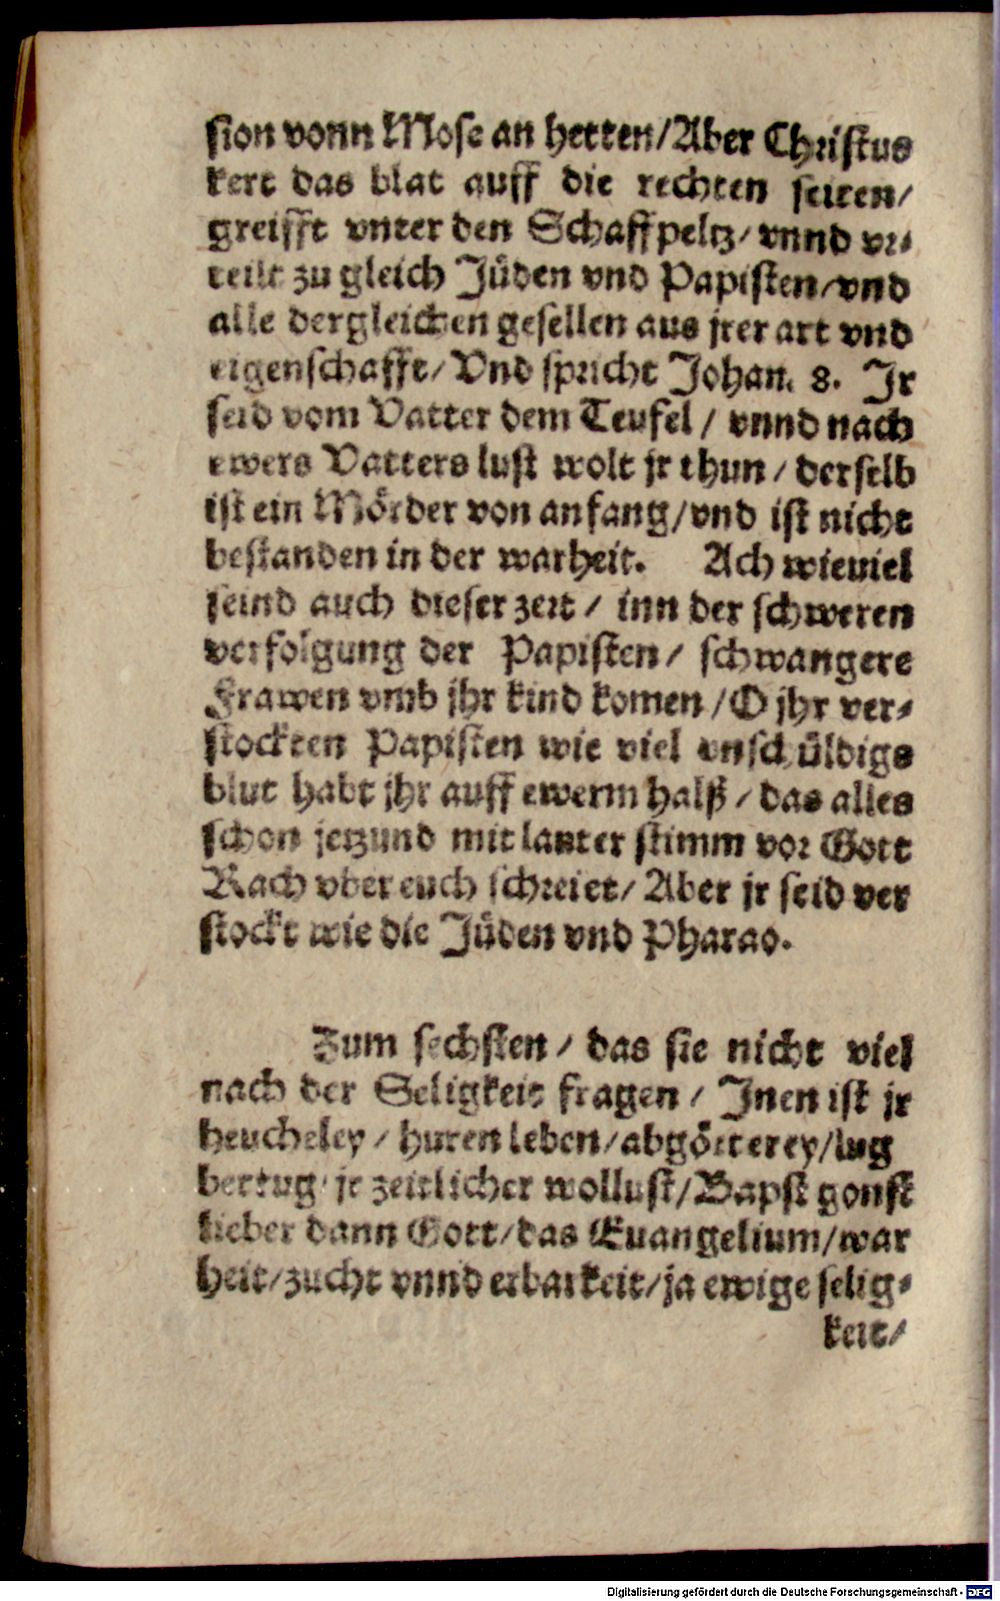 sion vonn Mose an hetten/Aber Christus
kert das blat auff die rechten seiten/
greifft vnter den Schaffpeltz/vnnd vr-
teilt zu gleich Jüden vnd Papisten/vnd
alle dergleichen gesellen aus jrer art vnd
eigenschafft/Vnd spricht Johan. 8. Jr
seid vom Vatter dem Teufel/vnnd nach
ewers Vatters lust wolt jr thun/derselb
ist ein Mörder von anfang/vnd ist nicht
bestanden in der warheit. Ach wieuiel
seind auch dieser zeit/inn der schweren
verfolgung der Papisten/schwangere
Frawen vmb jhr kind komen/O jhr ver-
stockten Papisten wie viel vnschüldigs
blut habt jhr auff ewerm halß/das alles
schon jetzund mit lauter stimm vor Gott
Rach vber euch schreiet/Aber jr seid ver
stockt wie die Jüden vnd Pharao.
Zum sechsten/das sie nicht viel
nach der Seligkeit fragen/Jnen ist jr
heucheley/huren leben/abgötterey/lug
bertug/jr zeitlicher wollust/Bapst gonst
lieber dann Gott/das Euangelium/war
heit/zucht vnnd erbarkeit/ja ewige selig-
keit/
Digitalisierung gefördert durch die Deutsche Forschungsgemeinschaft - DFG